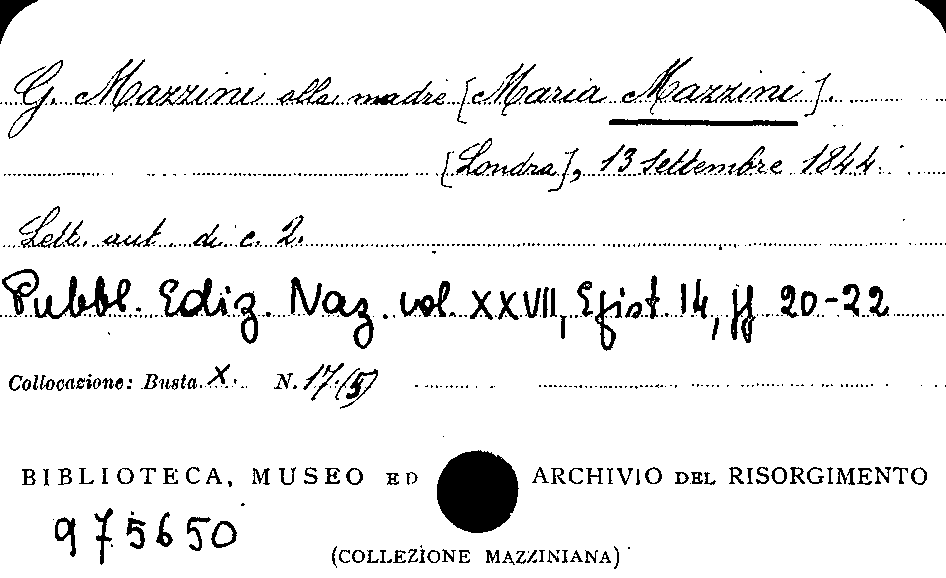 G. Mazzini alla madre [Maria Mazzini].
[Londra], 13 settembre 1844.
Lett. aut. di c. 2.
Pubbl. Ediz. Naz. vol. XXVII, Epist. 14, pp 20-22
Collocazione: Busta X. N. 17.(5)
BIBLIOTECA, MUSEO ED ARCHIVIO DEL RISORGIMENTO
975650
(COLLEZIONE MAZZINIANA)